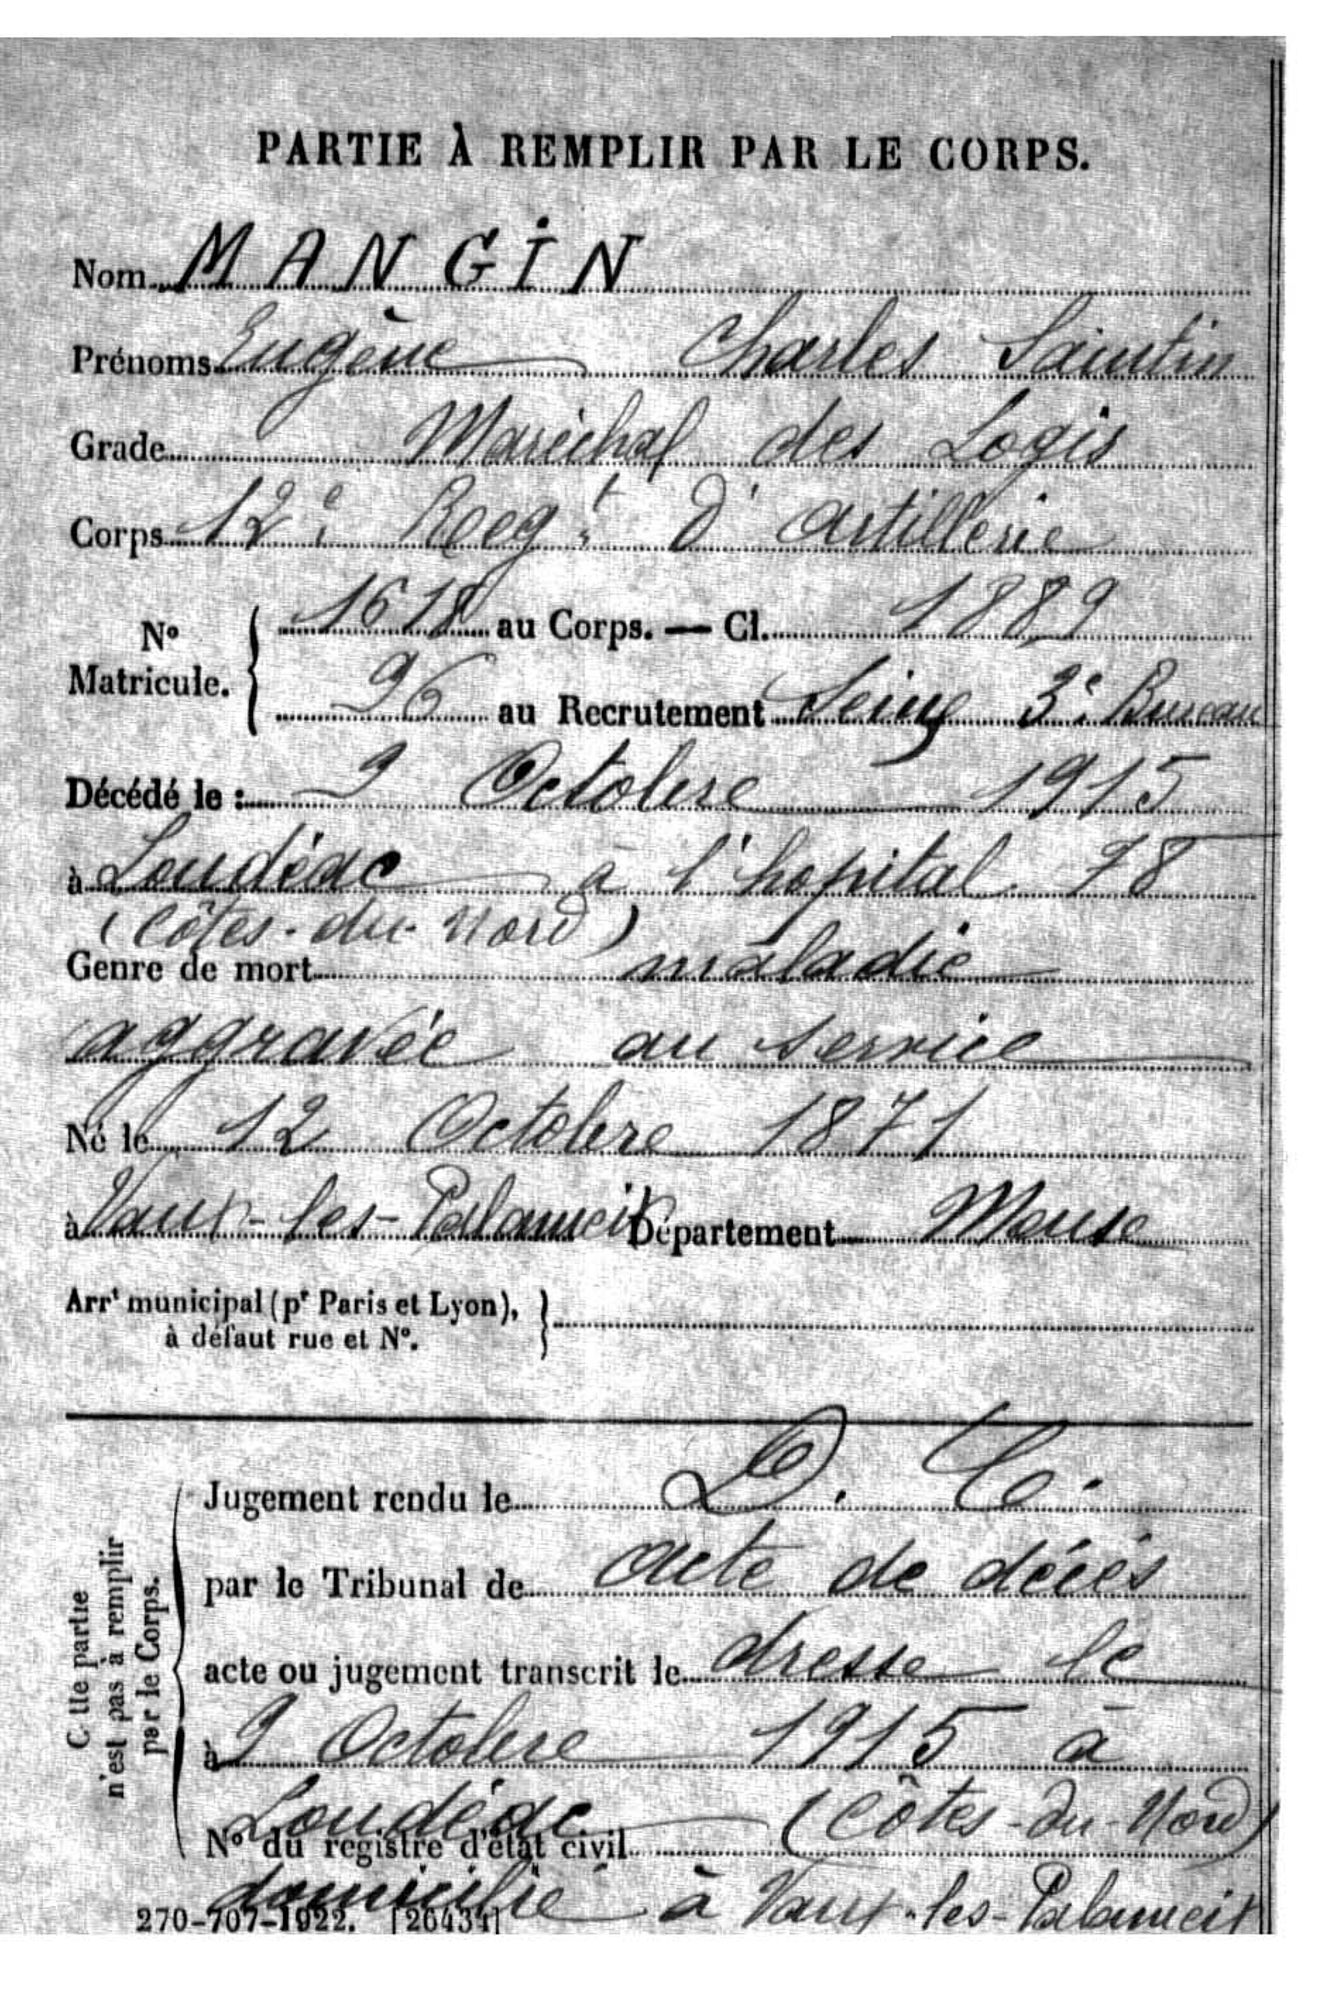 PARTIE À REMPLIR PAR LE CORPS.
Nom MANGIN
Prénoms Eugène Charles Saintin
Grade Maréchal des Logis
Corps 12e Reegt d'artillerie
No Matricule. { 1618 au Corps. — Cl. 1889
96 au Recrutement Seine 3e Bureau
Décédé le : 9 Octobre 1915
à Loudéac à l'hopital 78
(Côtes-du-Nord)
Genre de mort maladie
aggravée au service
Né le 12 Octobre 1871
à Vaux-les-Palameix Département Meuse
Arrt municipal (pr Paris et Lyon),
à défaut rue et No.
C tte partie
n'est pas à remplir
par le Corps.
Jugement rendu le D. C.
par le Tribunal de acte de décès
acte ou jugement transcrit le dresse le
à 9 Octobre 1915 à
Loudéac (Côtes-du-Nord)
No du registre d'état civil
domicilié à Vaux-les-Palameix
270-707-1922. [26434]